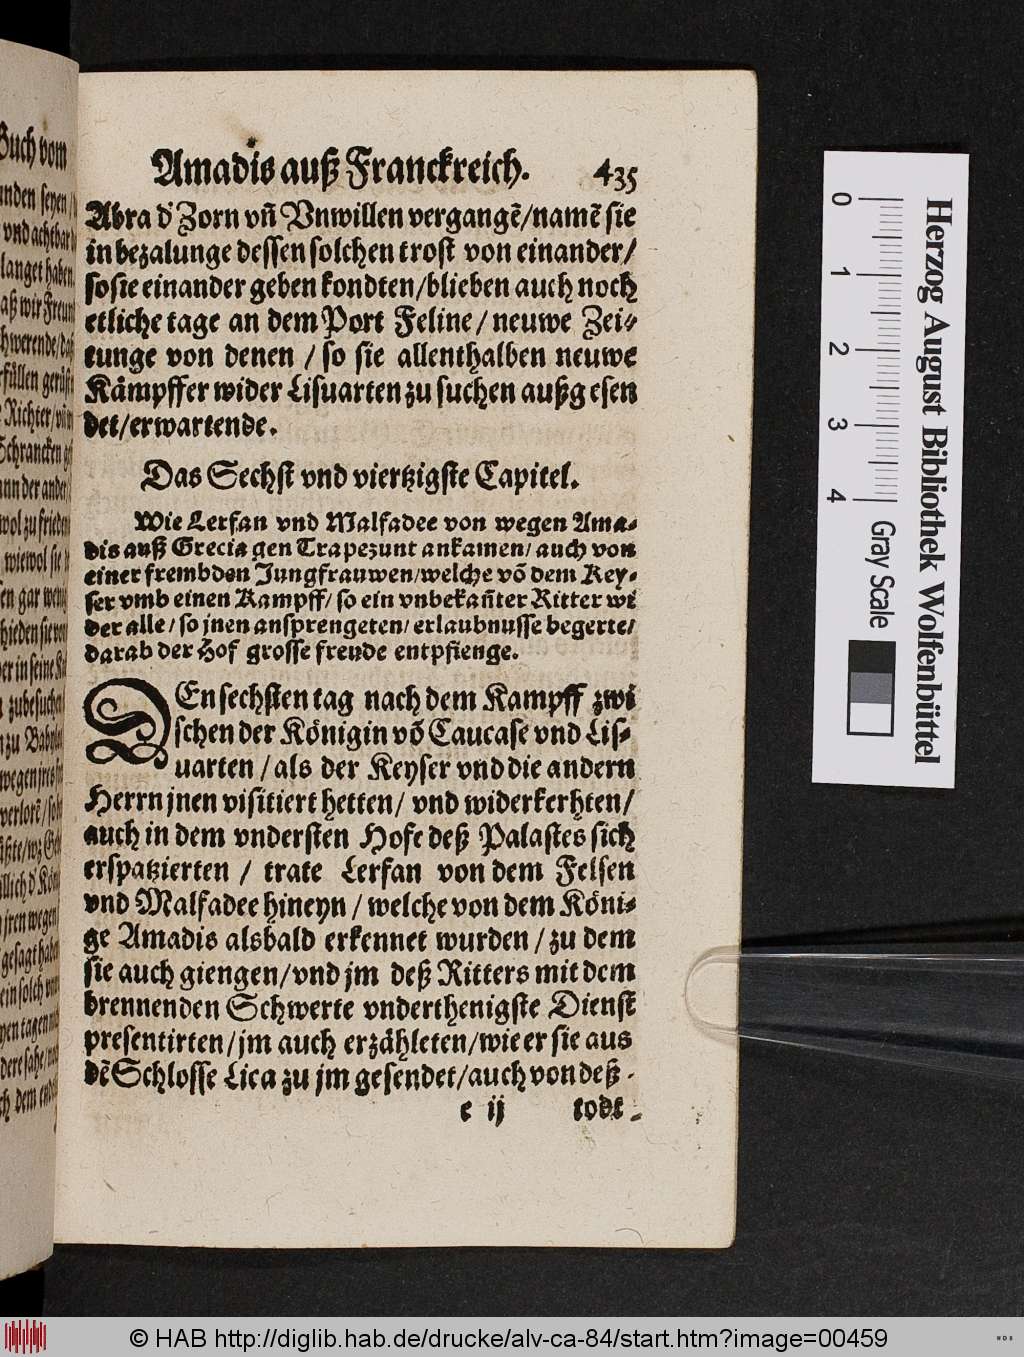 Amadis auß Franckreich. 435
Abra d' Zorn vñ Vnwillen vergangẽ/namẽ sie
in bezalunge dessen solchen trost von einander/
so sie einander geben kondten/blieben auch noch
etliche tage an dem Port Feline/neuwe Zei-
tunge von denen/so sie allenthalben neuwe
Kåmpffer wider Lisuarten zu suchen außgesen
det/erwartende.
Das Sechst vnd viertzigste Capitel.
Wie Lerfan vnd Malfadee von wegen Ama-
dis auß Grecia gen Trapezunt ankamen/auch von
einer frembden Jungfrauwen/welche võ dem Key-
ser vmb einen Kampff/so ein vnbekañter Ritter wi
der alle/so jnen ansprengeten/erlaubnusse begerte/
darab der Hof grosse freude entpfienge.
DEn sechsten tag nach dem Kampff zwi
schen der Königin võ Caucase vnd Lis-
uarten/als der Keyser vnd die andern
Herrn jnen visitiert hetten/vnd widerkerhten/
auch in dem vndersten Hofe deß Palastes sich
erspatzierten/trate Lerfan von dem Felsen
vnd Malfadee hineyn/welche von dem Köni-
ge Amadis alsbald erkennet wurden/zu dem
sie auch giengen/vnd jm deß Ritters mit dem
brennenden Schwerte vnderthenigste Dienst
presentirten/jm auch erzåhleten/wie er sie aus
dẽ Schlosse Lica zu jm gesendet/auch von deß
e ij todt
Buch vom
unden seyen/
vnd achtbar
langet haben.
aß wir Freun
hwerende/daß
füllen gerüst
Richter/
Schrancken
ann der ander
wol zu frieden
wiewol sie
en gar wenig
hieden sie von
er in seine
zubesuchen
zu Babylon
wegen jres
verlorẽ/
llich d' Kön
jren wegen
gesagt haben
ein solch
yen tagen
dere sahe/
ch dem
Herzog August Bibliothek Wolfenbüttel
0 1 2 3 4
Gray Scale
© HAB http://diglib.hab.de/drucke/alv-ca-84/start.htm?image=00459